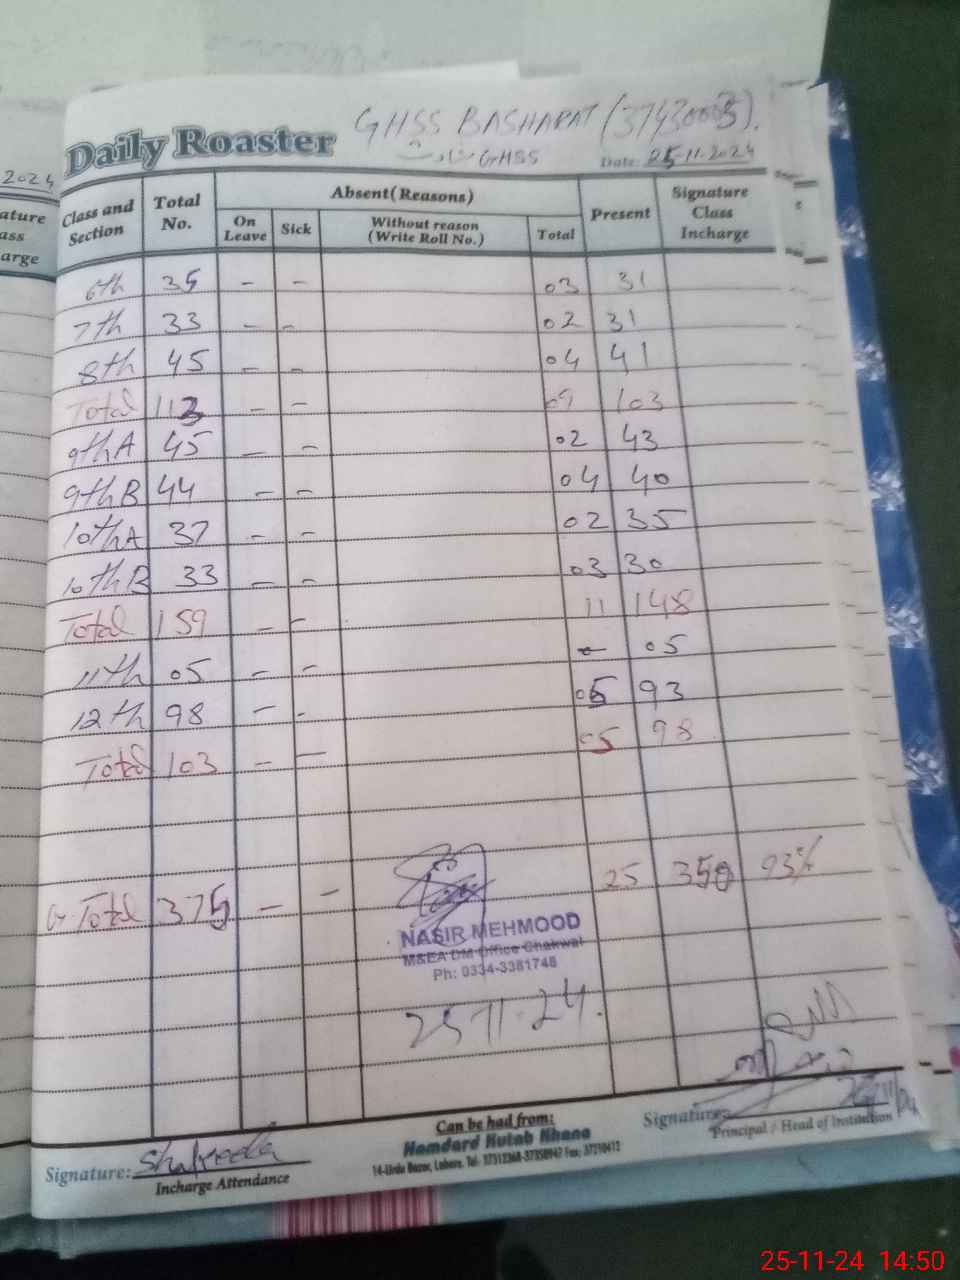 GHSS BASHARAT (37430003).
Daily Roaster
GHSS
Date: 25-11-2024
Class and Section Total No. Absent( Reasons) Present Signature Class Incharge
On Leave Sick Without reason (Write Roll No.) Total
6th 35 - - 03 31
7th 33 - - 02 31
8th 45 - - 04 41
Total 113 - - 09 103
9thA 45 - - 02 43
9thB 44 - - 04 40
10thA 37 - - 02 35
10thB 33 - - 03 30
Total 159 - - 11 148
11th 05 - - - 05
12th 98 - - 05 93
Total 103 - - 05 98
G-Total 375 - - 25 350 93%
NASIR MEHMOOD
M&EA DM Office Chakwal
Ph: 0334-3381748
25-11-24.
Can be had from:
Hamdard Kutab Khana
14-Urdu Bazar, Lahore. Tel: 37312368-37358947 Fax: 37210412
Signature: Shakeela
Incharge Attendance
Signature:
Principal / Head of Institution
2024
ature
ass
arge
25-11-24 14:50